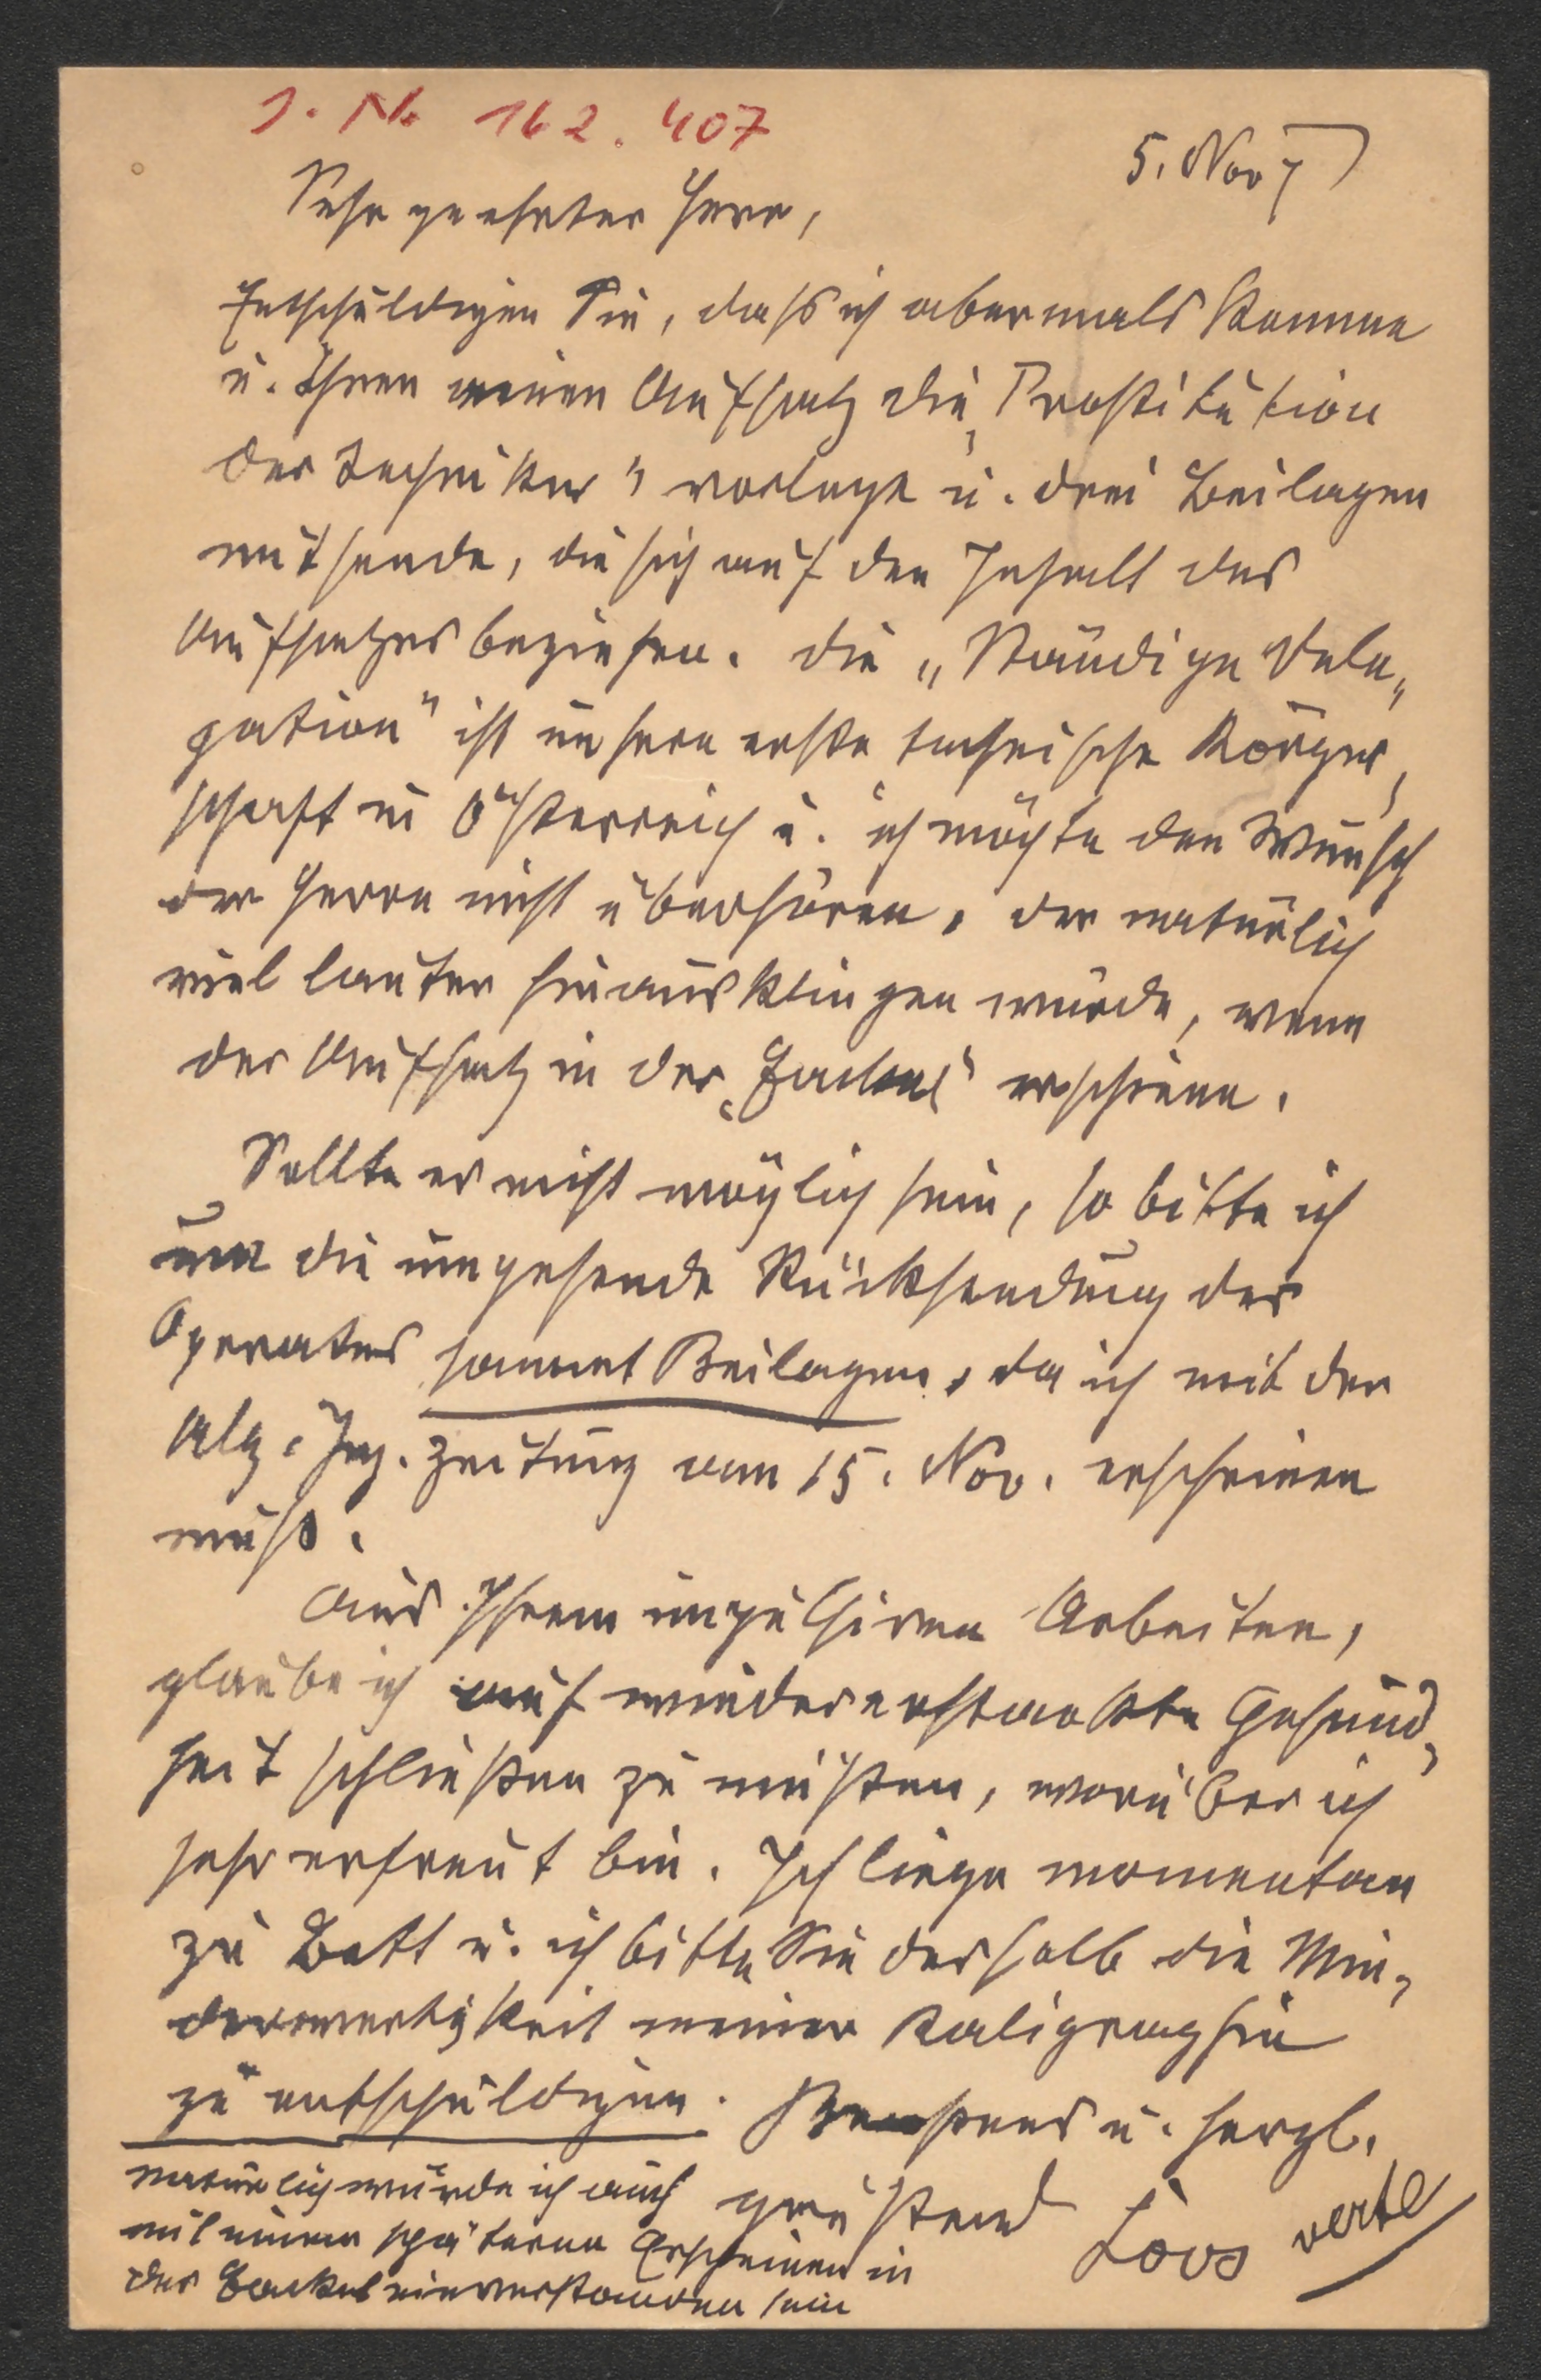 J. No 162.407
5. Nov 7
Sehr geehrter Herr,
Entschuldigen Sie, dass ich abermals komme
u. Ihnen meinen Aufsatz die „Prostitution
der Techniker" vorlege u. drei Beilagen
mitsende, die sich auf den Inhalt des
Aufsatzes beziehen. Die „Ständige Dele„
gation" ist unsere erste technische Körper,
schaft in Österreich u. ich möchte den Wunsch
der Herren nicht überhören, der natürlich
viel lauter hinausklingen würde, wenn
der Aufsatz in der „Fackel" erschiene.
Sollte es nicht möglich sein, so bitte ich
um die umgehende Rücksendung des
Operates sammt Beilagen, da ich mit der
Alg. Ing. Zeitung am 15. Nov. erscheinen
muß.
Aus Ihrem impulsiven Arbeiten,
glaube ich auf wiedererstarkte Gesund„
heit schließen zu müßen, worüber ich
sehr erfreut bin. Ich liege momentan
zu Bett u. ich bitte Sie deshalb die Min„
derwertigkeit meiner Kaligraphie
zu entschuldigen. u. herzl.
grüßend Loos verte
natürlich würde ich auch
mit einem späteren Erscheinen in
der Fackel einverstanden sein